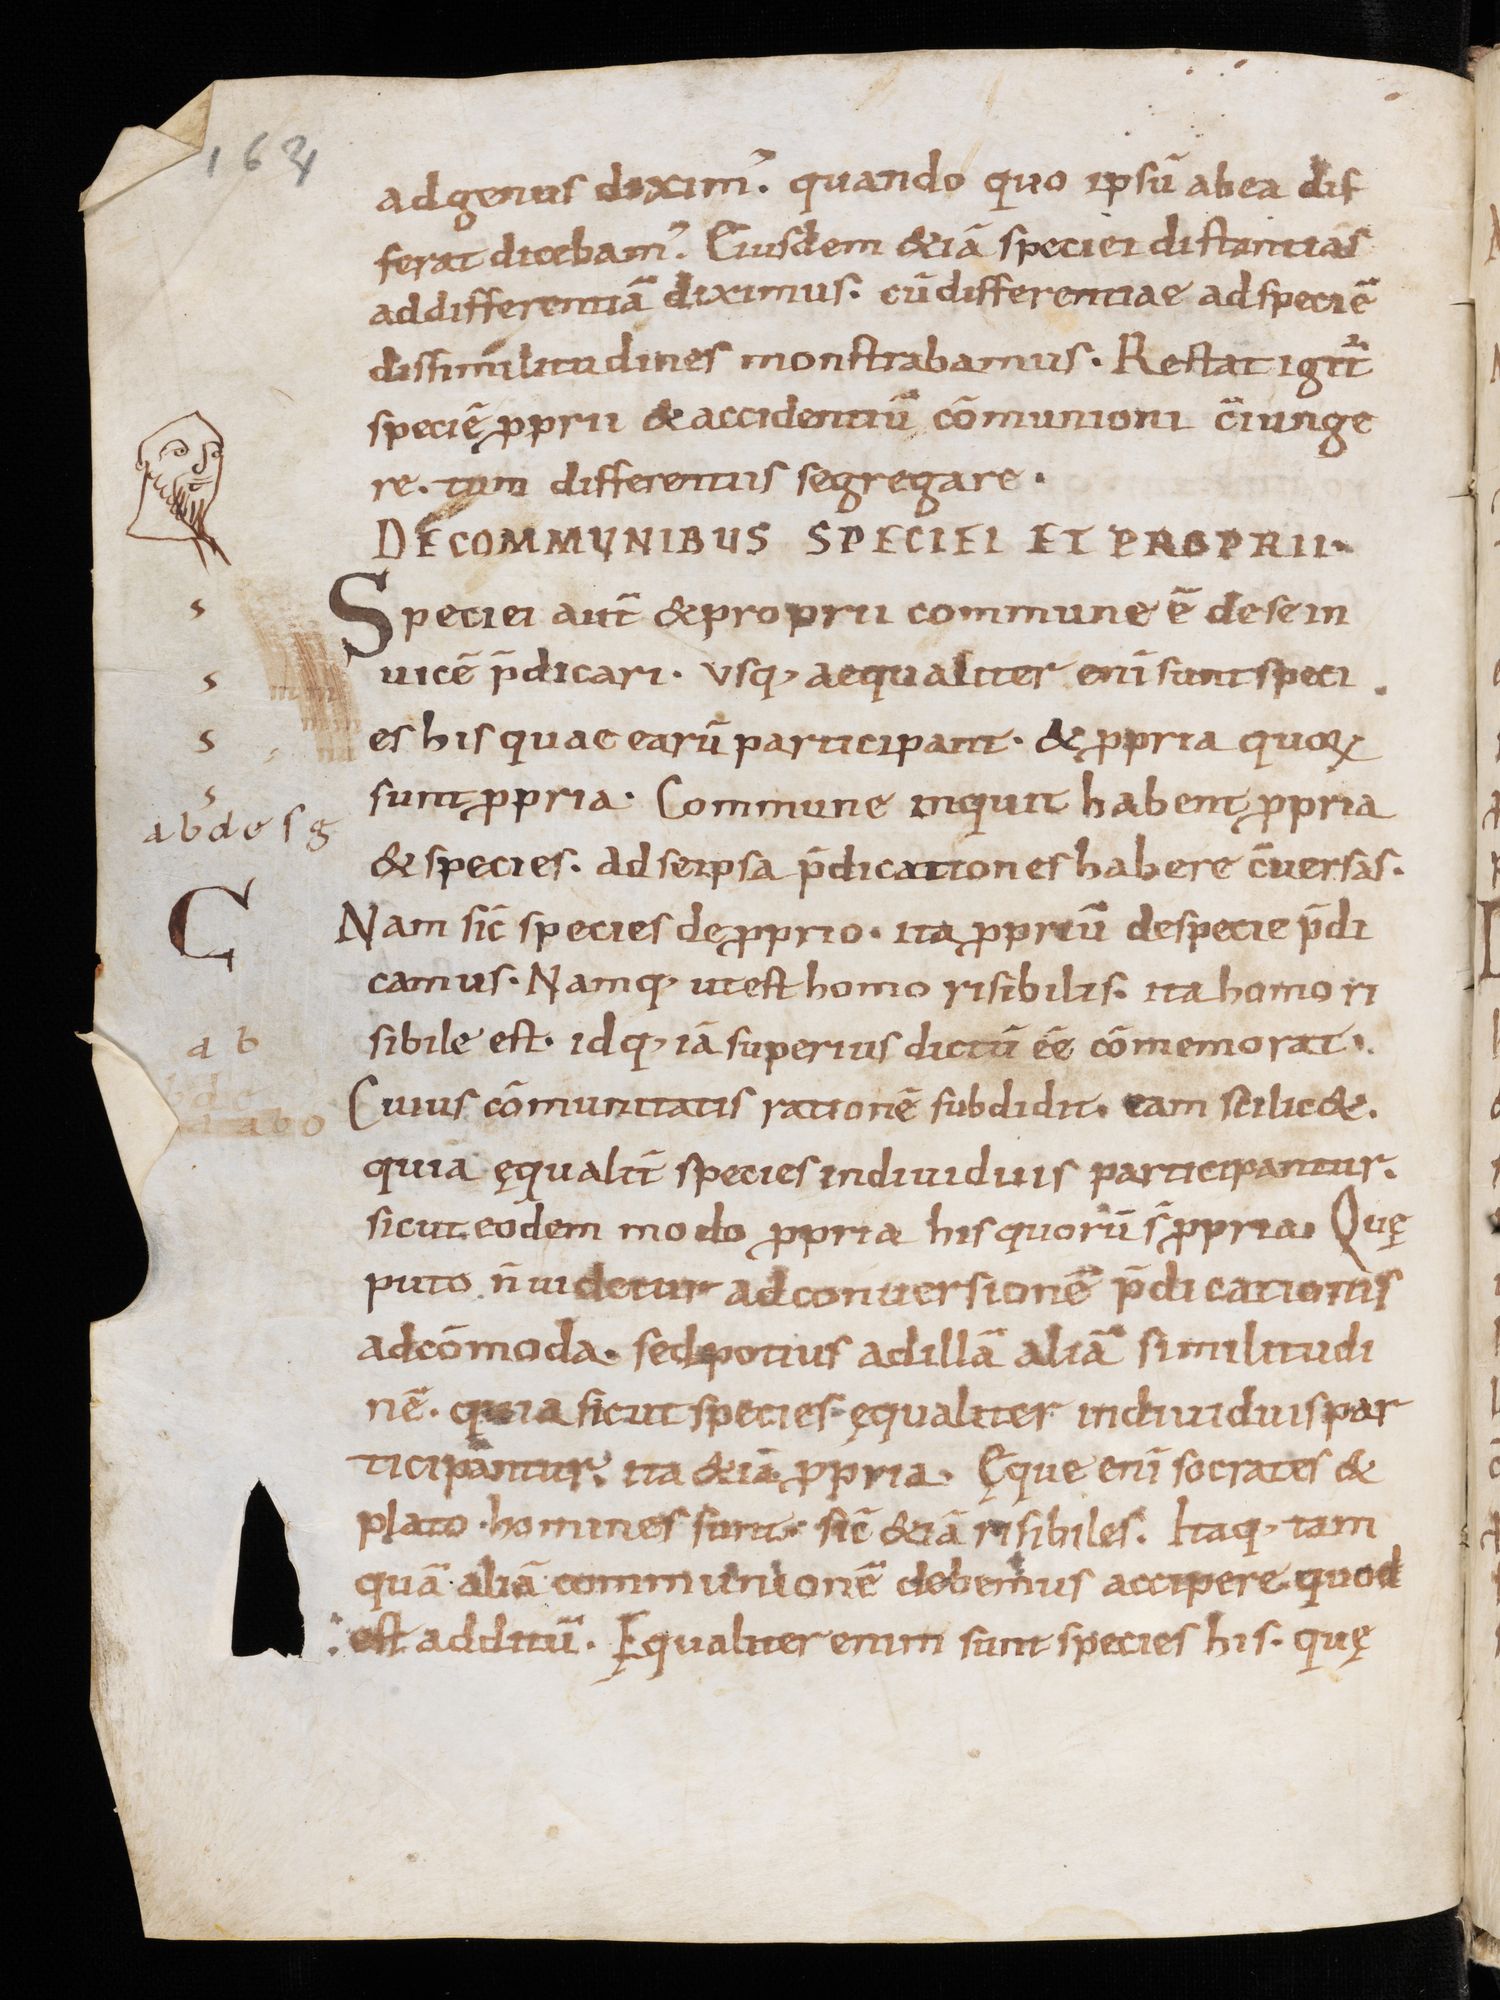 164
ad genus diximꝰ. quando quo ipsū ab ea dif
ferat dicebamꝰ. Eiusdem &iā speciei distantias
ad differentiā diximus. cū differentiae ad speciē
dissimilitudines monstrabamus. Restat igit᷑
speciē ꝓprii & accidentiū cōmunioni c̄iunge
re. tum differentiis segregare.
DE COMMUNIBUS SPECIEI ET PROPRII.
Speciei aut̄ & proprii commune ē de se in
uicē p̄dicari. Vsq, aequaliter eni sunt speci
es his quae earū participant. & ꝓpria quoꝝ
sunt ꝓpria. Commune inquit habent ꝓpria
& species. ad se ipsa p̄dicationes habere c̄uersas.
Nam sic̄ species de ꝓprio. ita ꝓpriū de specie p̄di
camus. Namq, ut est homo risibilis. ita homo ri
sibile est. idq, iā superius dictū eē cōmemorat.
Cuius cōmunitatis rationē subdidit. eam scilic&.
quia ęqualit̄ species indiuiduis participantur.
sicut eodem modo ꝓpria his quorū s̄ ꝓpria. Quę
puto n̄ uidetur ad conuersionē p̄dicationis
adcōmoda. sed potius ad illā aliā similitudi
nē. quia sicut species ęqualiter indiuiduis par
ticipantur. ita &iā ꝓpria. Ęque eni socrates &
plato homines sunt. sic̄ &iā risibiles. Itaq, tam
quā aliā communionē debemus accipere quod
est additū. Ęqualiter enim sunt species his. quę
s
s
s
s
a b d e s g
C
a b
a b o